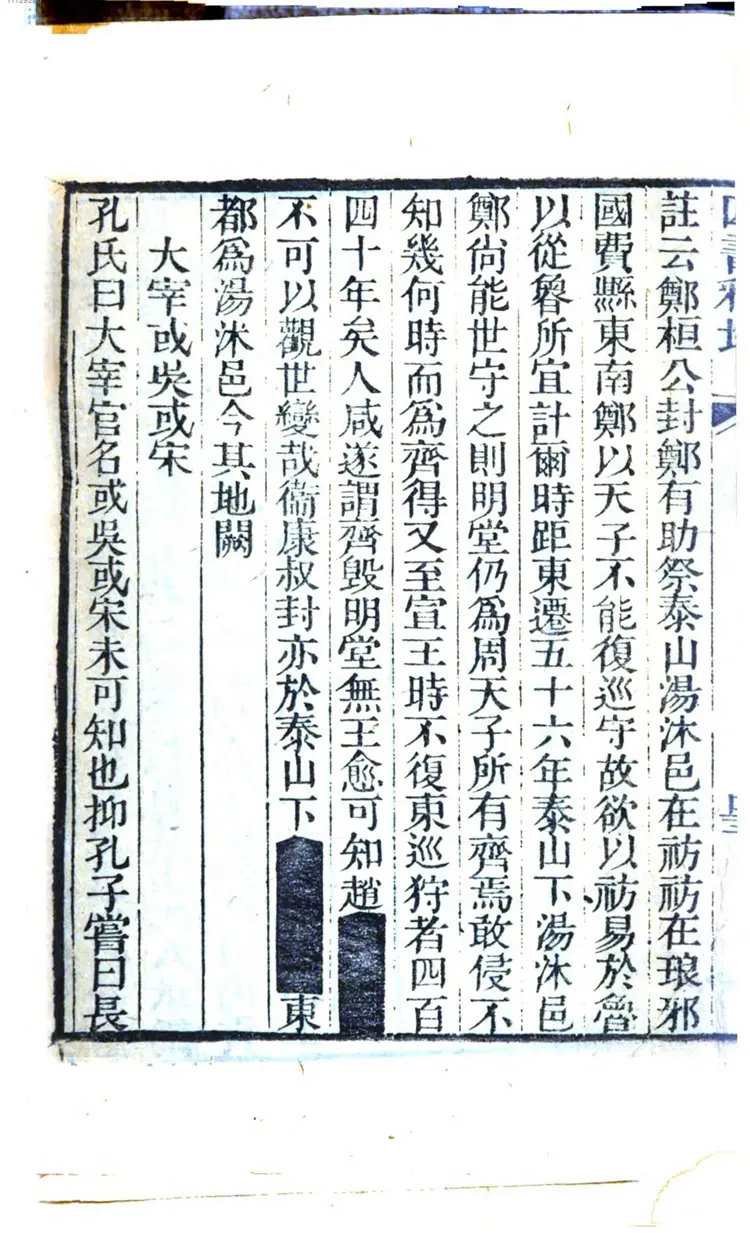 註云鄭桓公封鄭有助祭泰山湯沐邑在祊祊在琅邪
國費縣東南鄭以天子不能復巡守故欲以祊易於魯
以從魯所宜計爾時距東遷五十六年泰山下湯沐邑
鄭尚能世守之則明堂仍為周天子所有齊焉敢侵不
知幾何時而為齊得又至宣王時不復東巡狩者四百
四十年矣人咸遂謂齊毀明堂無王愈可知趙
不可以觀世變哉衞康叔封亦於泰山下 東
都為湯沐邑今其地闕
大宰或吳或宋
孔氏曰大宰官名或吳或宋未可知也抑孔子嘗曰長